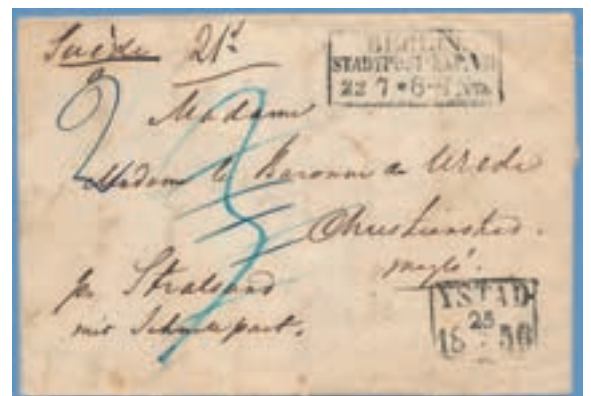 Suède 21d
BERLIN.
STADTPOST-EXP. VII
22 7 * 6-7 Nm
Madame
Madame la Baronne de Wrede
Christianstad.
per Stralsund
mit
YSTAD
25
18 56